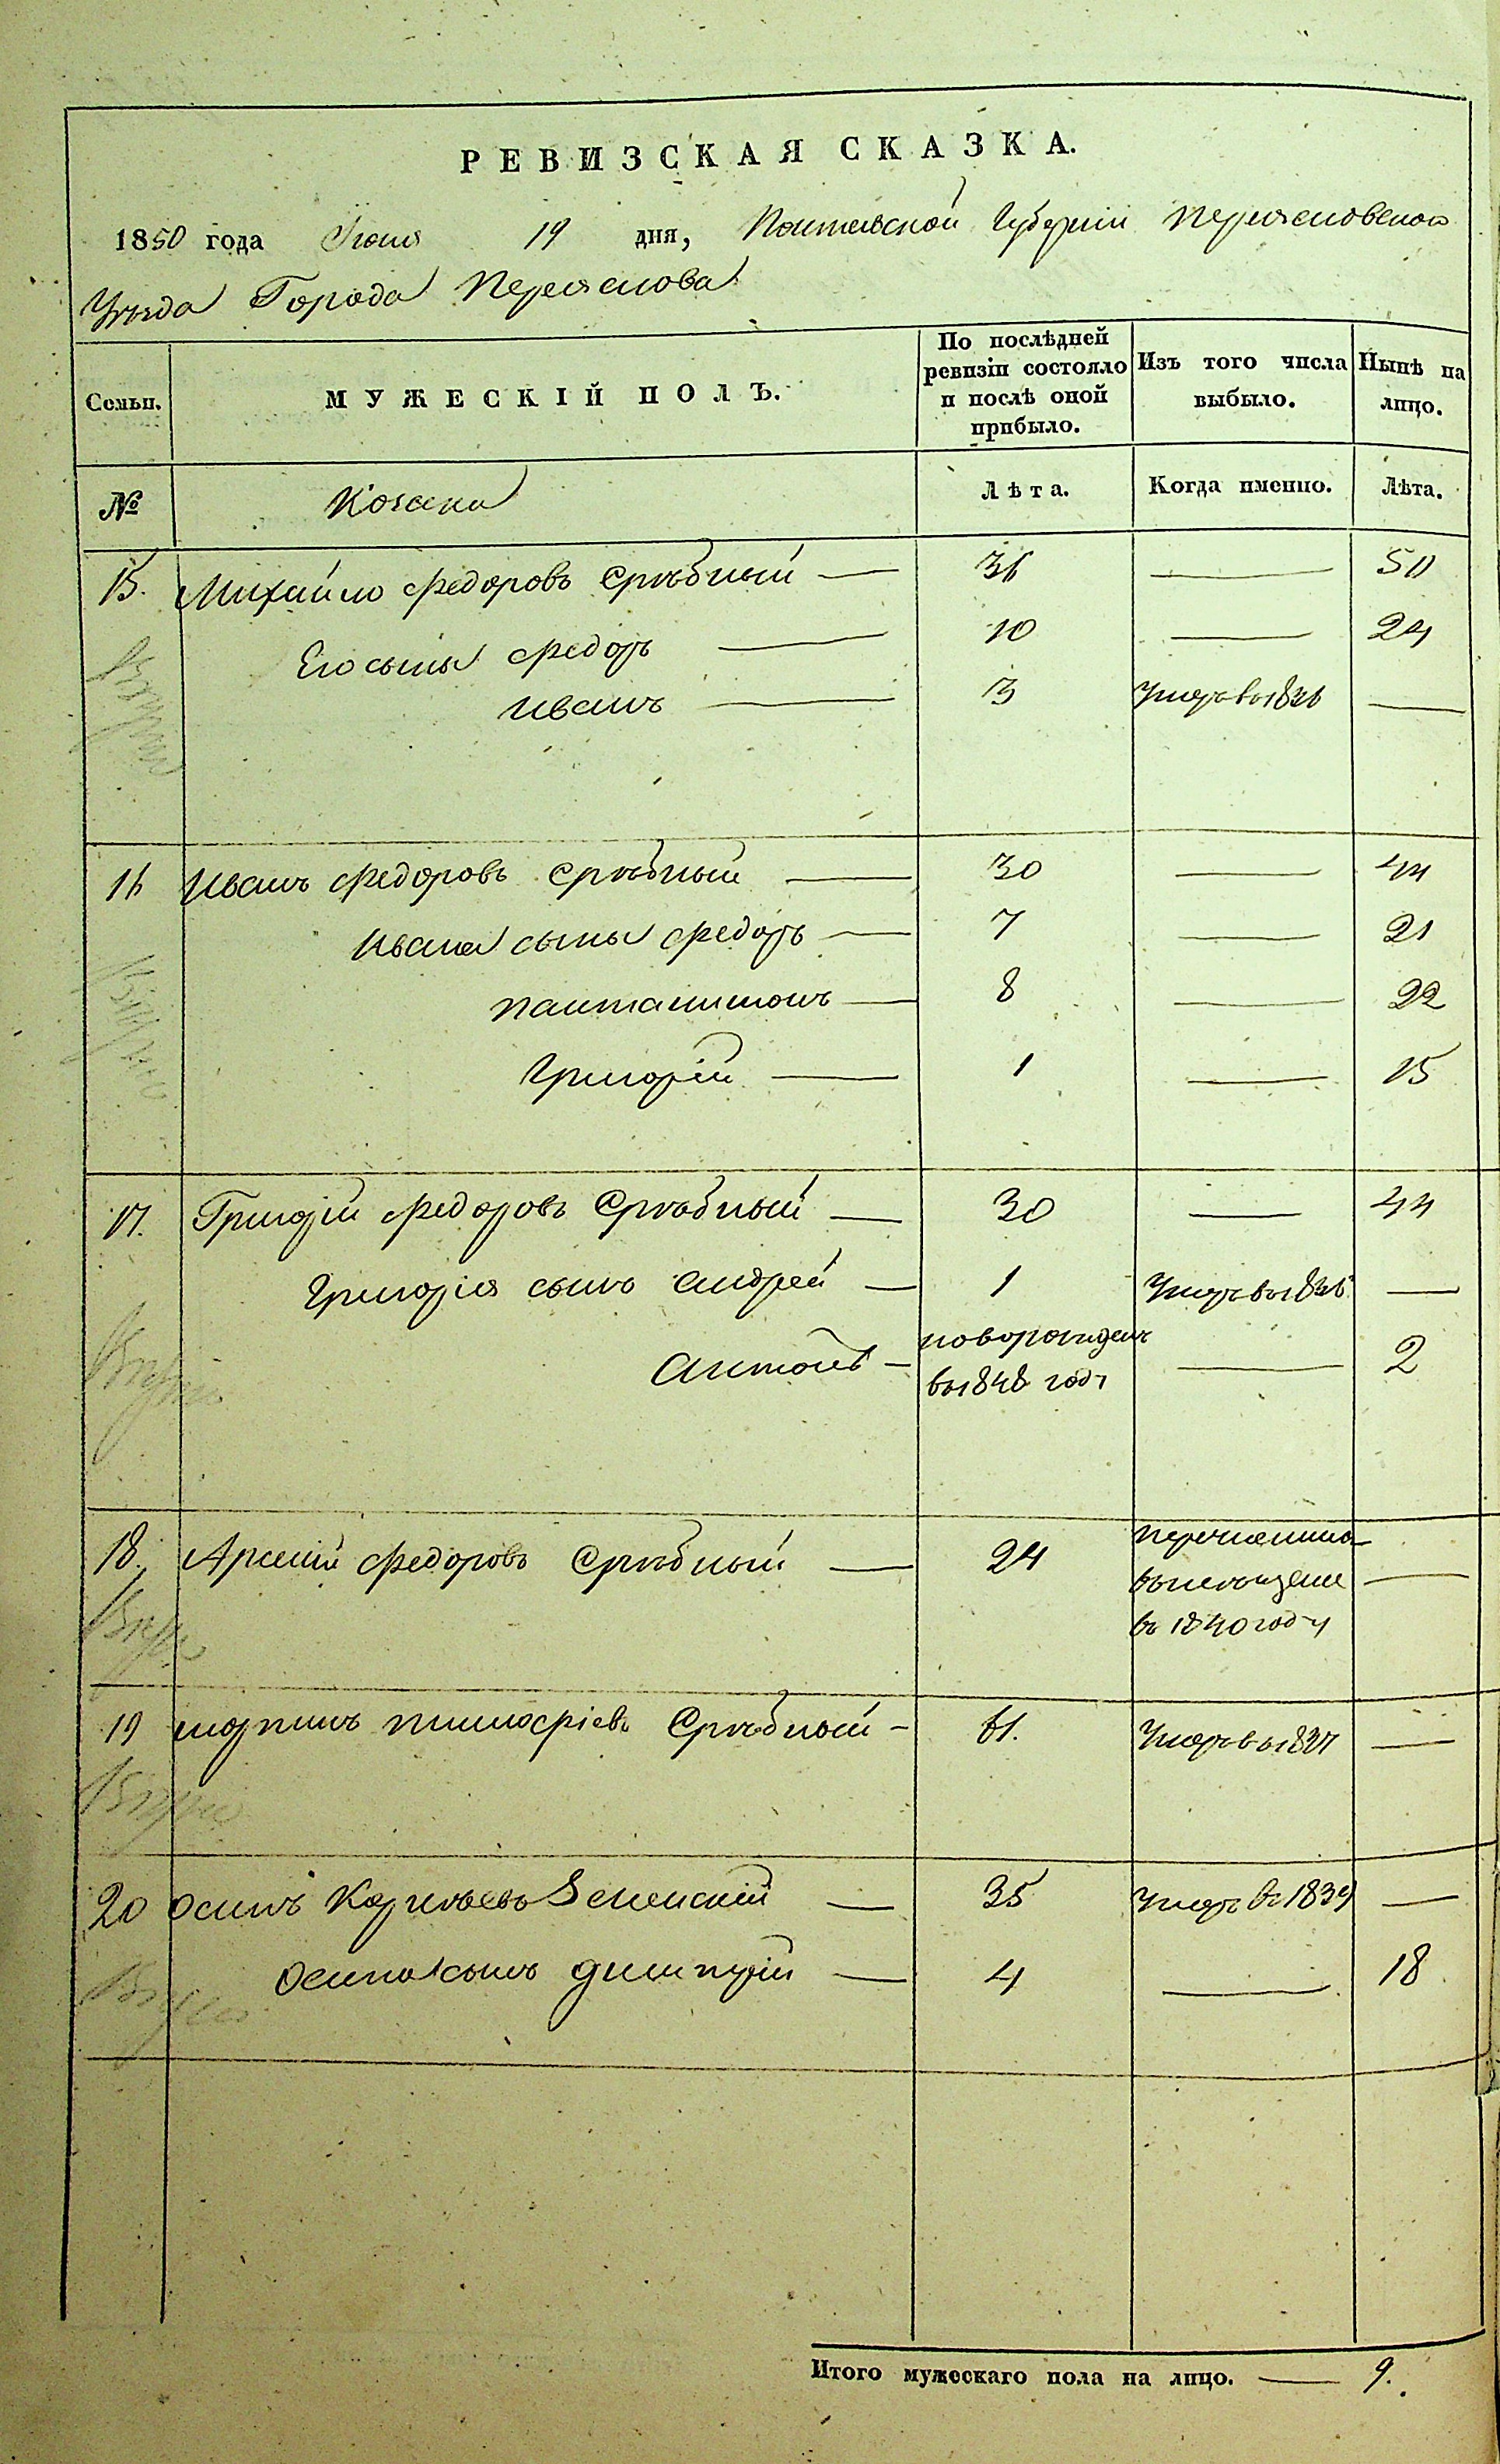 РЕВИЗСКАЯ СКАЗКА.
1850 года Июня 19 дня, Полтавской Губерніи Переяславскаго
Уѣзда Города Переяслова
Семьи.
МУЖЕСКІЙ ПОЛЪ.
По послѣдней ревизіи состояло и послѣ оной прибыло.
Изъ того числа выбыло.
Нынѣ на лицо.
№ Козаки Лѣта. Когда именно. Лѣта.
15. Михайло Федоровъ Срѣбный — 36 — 50
Его сыны Федоръ — 10 — 24
Иванъ — 3 Умеръ въ 1836 —
16 Иванъ Федоровъ Срѣбный — 30 — 44
Ивана сыны Федоръ — 7 — 21
Пантелимонъ — 8 — 22
Григорій — 1 — 15
17. Григорій Федоровъ Срѣбный — 30 — 44
Григорія сынъ Андрей — 1 Умеръ въ 1836 —
Антонъ — новорожденъ — 2
въ 1848 году
18. Арсеній Федоровъ Срѣбный — 24 —
въ 1840 году
19 Тимофіевъ Срѣбный — 61. Умеръ въ 1837 —
20 Осипъ Корнѣевъ Зеленскій — 35 Умеръ въ 1839 —
Осипа сынъ Димитрій — 4 — 18
Итого мужескаго пола на лицо. — 9.